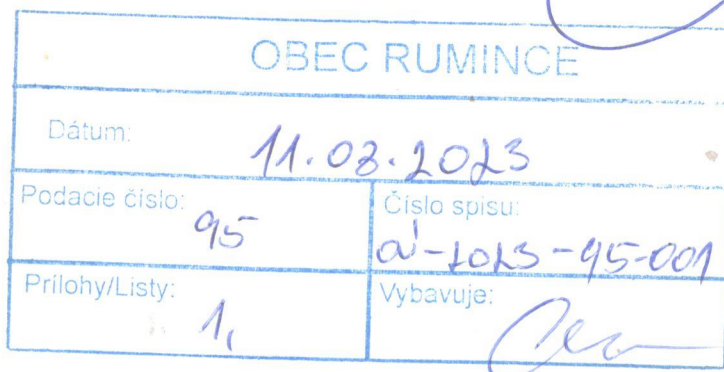 OBEC RUMINCE
Dátum: 11.08.2023
Podacie číslo: 95
Číslo spisu: OÚ-2023-95-001
Prílohy/Listy: 1,
Vybavuje: